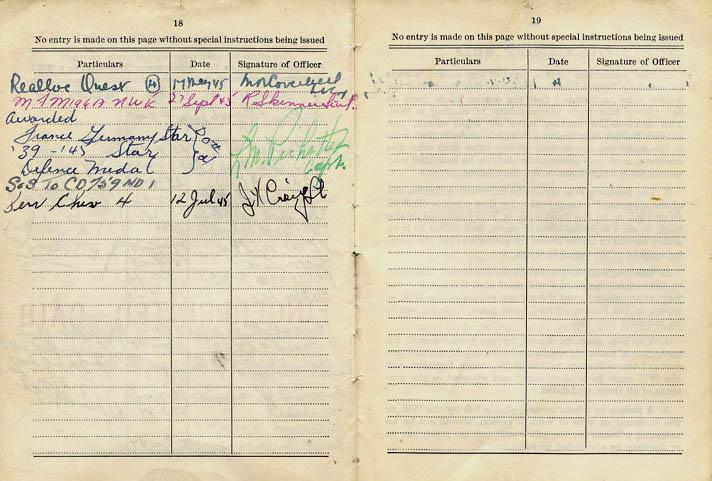 18
No entry is made on this page without special instructions being issued
Particulars Date Signature of Officer
Realloc Quest (H) 17 May 45
M.F.M 196A NWK 27 Sept 45 R Skinner
Awarded
France Germany Star
'39 - '45 Star
Defence Medal
SOS To CD 759 ND 1
Serv Chev 4 12 Jul 45
19
No entry is made on this page without special instructions being issued
Particulars Date Signature of Officer